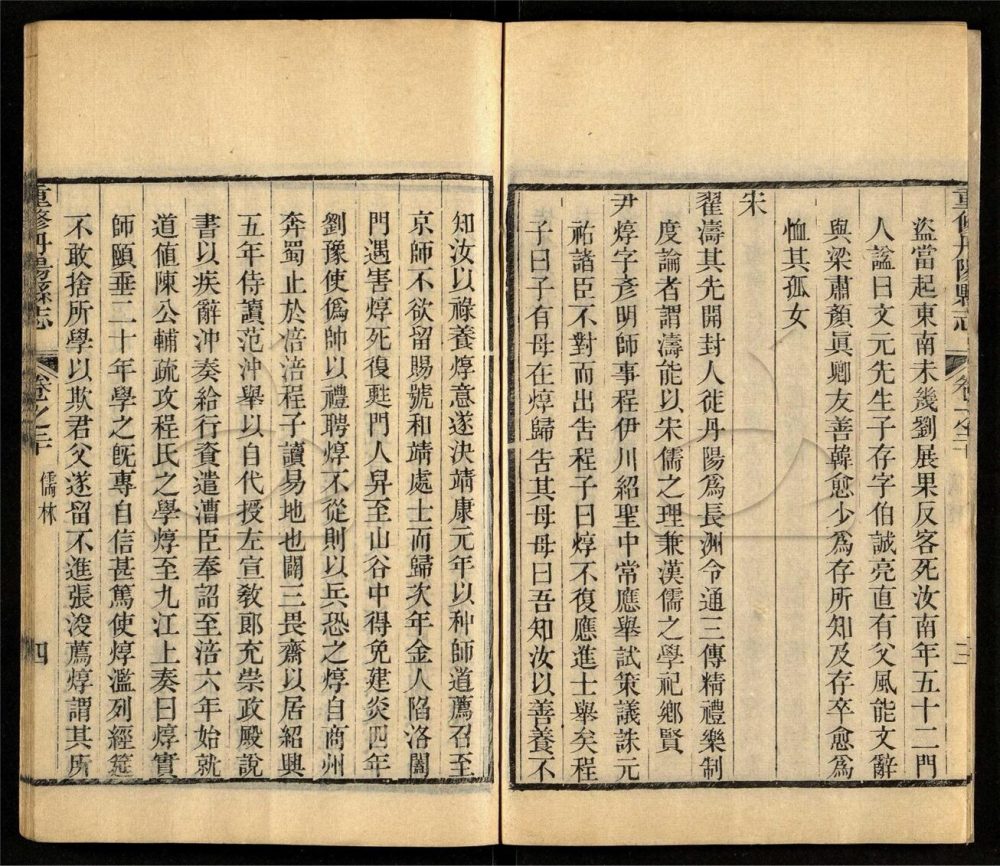 盜當起東南未幾劉展果反客死汝南年五十二門
人諡曰文元先生子存字伯誠亮直有父風能文辭
與梁肅顏眞卿友善韓愈少爲存所知及存卒愈爲
恤其孤女
宋
翟濤其先開封人徙丹陽爲長洲令通三傳精禮樂制
度論者謂濤能以宋儒之理兼漢儒之學祀鄉賢
尹焞字彥明師事程伊川紹聖中常應舉試策議誅元
祐諸臣不對而出吿程子曰焞不復應進士舉矣程
子曰子有母在焞歸吿其母母曰吾知汝以善養不
重修丹陽縣志
卷之二十
儒林
四
知汝以祿養焞意遂決靖康元年以种師道薦召至
京師不欲留賜號和靖處士而歸次年金人陷洛闔
門遇害焞死復甦門人舁至山谷中得免建炎四年
劉豫使僞帥以禮聘焞不從則以兵恐之焞自商州
奔蜀止於涪涪程子讀易地也闢三畏齋以居紹興
五年侍讀范沖舉以自代授左宣敎郎充崇政殿說
書以疾辭沖奏給行資遣漕臣奉詔至涪六年始就
道値陳公輔疏攻程氏之學焞至九江上奏曰焞實
師頤垂二十年學之旣專自信甚篤使焞濫列經筵
不敢捨所學以欺君父遂留不進張浚薦焞謂其所